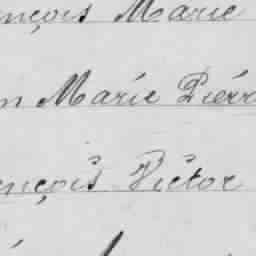 ançois Marie
n Marie Pierr
nçois Victor